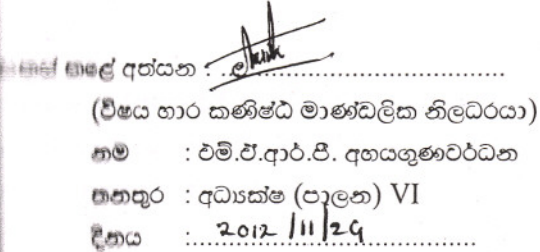 කළේ අත්සන :
(විෂය භාර කණිෂ්ඨ මාණ්ඩලික නිලධරයා)
නම : එම්.ඒ.ආර්.පී. අභයගුණවර්ධන
තනතුර : අධ්‍යක්ෂ (පාලන) VI
දිනය : 2012/11/29